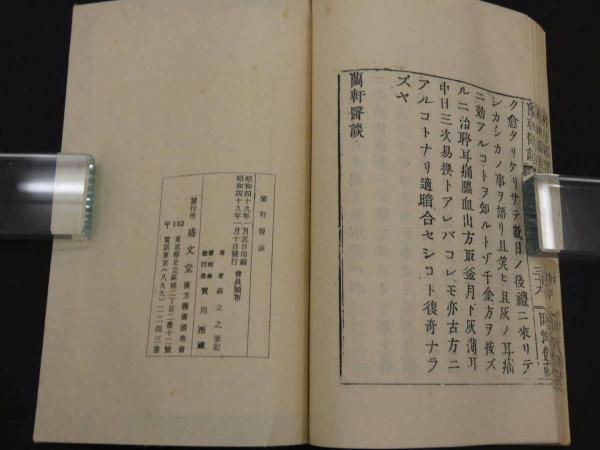 ク愈タリケリサテ數日ノ後禮ニ來リテ
シカシカノ事ヲ語リ且笑ヒ且灰ノ耳痛
ニ効アルコトヲ知ルトゾ千金方ヲ按ズ
ルニ治聤耳痛膿血出方取釜月下灰薄耳
中日三次易換トアレバコレモ亦古方ニ
アルコトナリ適暗合セシコト復奇ナラ
ズヤ
蘭軒醫談
蘭軒醫談
昭和四十九年一月五日印刷
昭和四十九年一月十日發行
會員頒布
著者 森立之筆記
發行者 賀川浩藏
發行所 盛文堂 漢方醫書頒布會
〒122 東京都足立區梅田二丁目二番十二號
電話東京(八九九)二二四三番